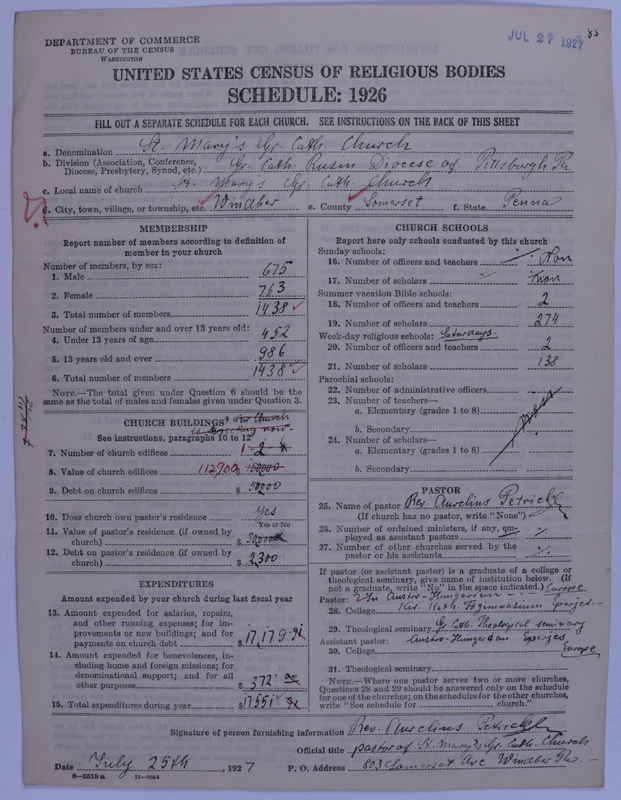 DEPARTMENT OF COMMERCE
BUREAU OF THE CENSUS
WASHINGTON
JUL 27 1927
83
UNITED STATES CENSUS OF RELIGIOUS BODIES
SCHEDULE: 1926
FILL OUT A SEPARATE SCHEDULE FOR EACH CHURCH. SEE INSTRUCTIONS ON THE BACK OF THIS SHEET
a. Denomination St. Mary's Gr. Cath. Church
b. Division (Association, Conference, Diocese, Presbytery, Synod, etc.) Gr. Cath. Rusin Diocese of Pittsburgh Pa
c. Local name of church St. Mary's Gr. Cath. Church
d. City, town, village, or township, etc. Windber e. County Somerset f. State Penna
MEMBERSHIP
Report number of members according to definition of member in your church
Number of members, by sex:
1. Male 675
2. Female 763
3. Total number of members 1438
Number of members under and over 13 years old:
4. Under 13 years of age 452
5. 13 years old and over 986
6. Total number of members 1438
NOTE.—The total given under Question 6 should be the same as the total of males and females given under Question 3.
CHURCH BUILDINGS
See instructions, paragraphs 10 to 12
7. Number of church edifices 1 2
8. Value of church edifices 112900 $
9. Debt on church edifices $
10. Does church own pastor's residence Yes
Yes or No
11. Value of pastor's residence (if owned by church) $
12. Debt on pastor's residence (if owned by church) $ 2300
EXPENDITURES
Amount expended by your church during last fiscal year
13. Amount expended for salaries, repairs, and other running expenses; for improvements or new buildings; and for payments on church debt $ 17,179
14. Amount expended for benevolences, including home and foreign missions; for denominational support; and for all other purposes $ 372
15. Total expenditures during year $ 17551
CHURCH SCHOOLS
Report here only schools conducted by this church
Sunday schools:
16. Number of officers and teachers Non
17. Number of scholars Non
Summer vacation Bible schools:
18. Number of officers and teachers 2
19. Number of scholars 274
Week-day religious schools: Saturdays.
20. Number of officers and teachers 2
21. Number of scholars 138
Parochial schools:
22. Number of administrative officers
23. Number of teachers—
a. Elementary (grades 1 to 8)
b. Secondary
24. Number of scholars—
a. Elementary (grades 1 to 8)
b. Secondary
PASTOR
25. Name of pastor Rev. Aurelius Petrick
(If church has no pastor, write "None")
26. Number of ordained ministers, if any, employed as assistant pastors
27. Number of other churches served by the pastor or his assistants
If pastor (or assistant pastor) is a graduate of a college or theological seminary, give name of institution below. (If not a graduate, write "No" in the space indicated.) Europe
Pastor:
28. College
29. Theological seminary Gr. Cath. Theological seminary
Assistant pastor:
30. College Europe
31. Theological seminary
NOTE.—Where one pastor serves two or more churches, Questions 28 and 29 should be answered only on the schedule for one of the churches; on the schedules for the other churches, write "See schedule for church."
Signature of person furnishing information Rev. Aurelius Petrick
Official title pastor of St. Mary's Gr. Cath. Church
Date July 25th, 1927 P. O. Address 803 Somerset Ave Windber Pa.
8—5518a 11—9064